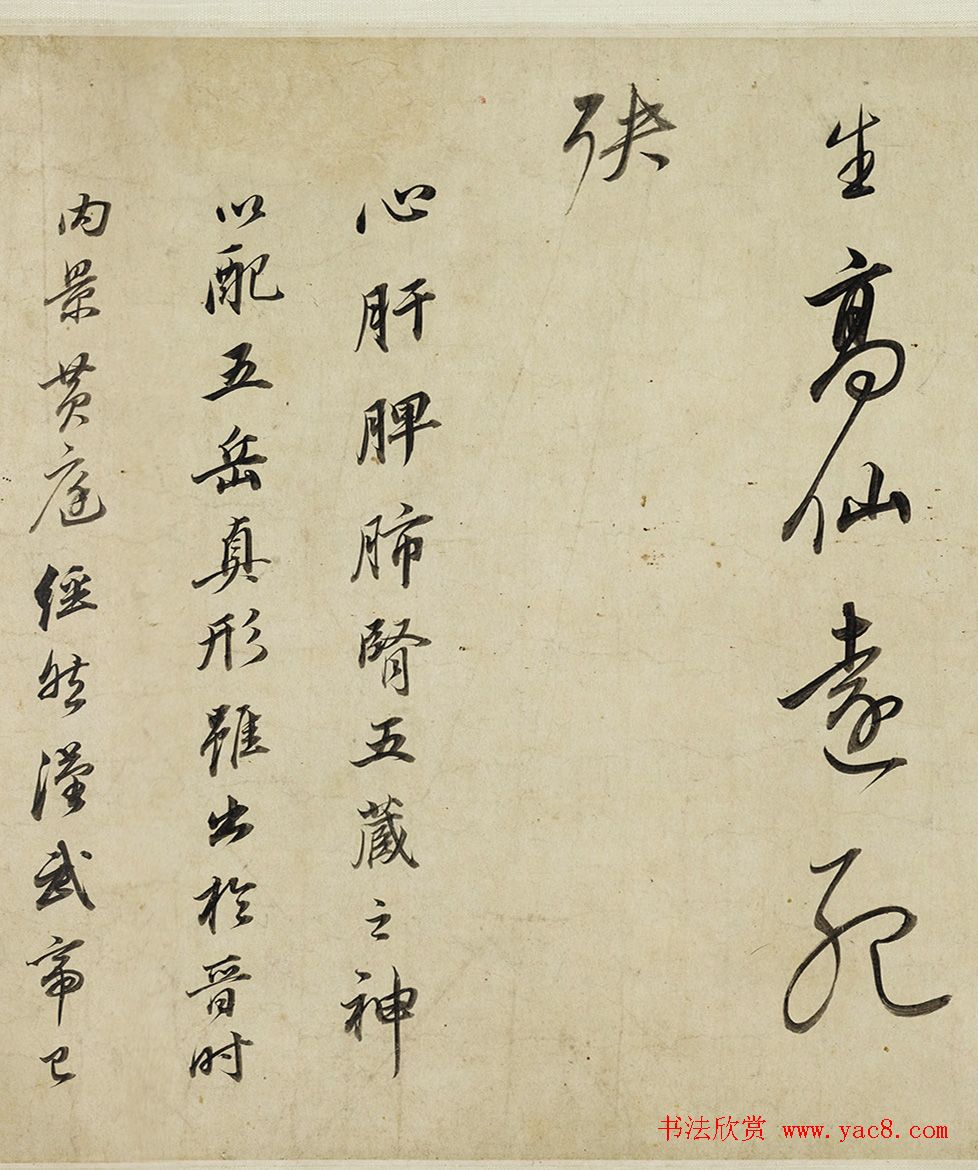 生高仙遠死
殃
心肝脾肺腎五蔵之神
以配五岳真形雖出於晉時
内景黄庭經然漢武帝已
书法欣赏 www.yac8.com